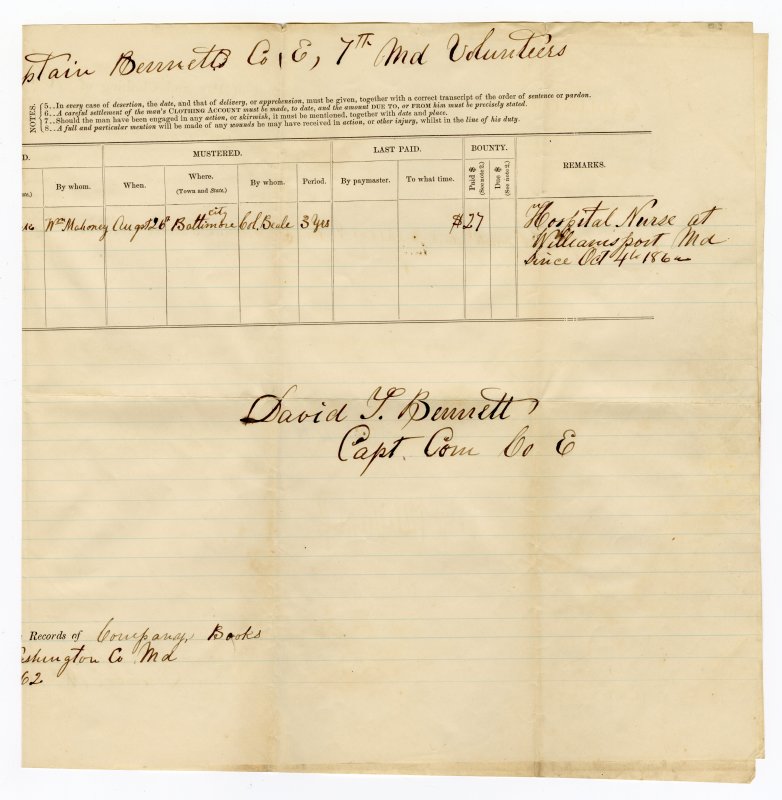 ptain Bennetts Co E, 7th Md Volunteers
NOTES.
5..In every case of desertion, the date, and that of delivery, or apprehension, must be given, together with a correct transcript of the order of sentence or pardon.
6..A careful settlement of the man's CLOTHING ACCOUNT must be made, to date, and the amount DUE TO, or FROM him must be precisely stated.
7..Should the man have been engaged in any action, or skirmish, it must be mentioned, together with date and place.
8..A full and particular mention will be made of any wounds he may have received in action, or other injury, whilst in the line of his duty.
D. MUSTERED. LAST PAID. BOUNTY. REMARKS.
By whom. When. Where. (Town and State.) By whom. Period. By paymaster. To what time. Paid $ (See note 2.) Due $ (See note 2.)
Wm Mahoney Augst 26th Baltimore city Col. Beale 3 Yrs $27 Hospital Nurse at
Williamsport Md
Since Oct 4th 1862
David T. Bennett
Capt. Com Co E
Records of Company Books
ashington Co Md
62